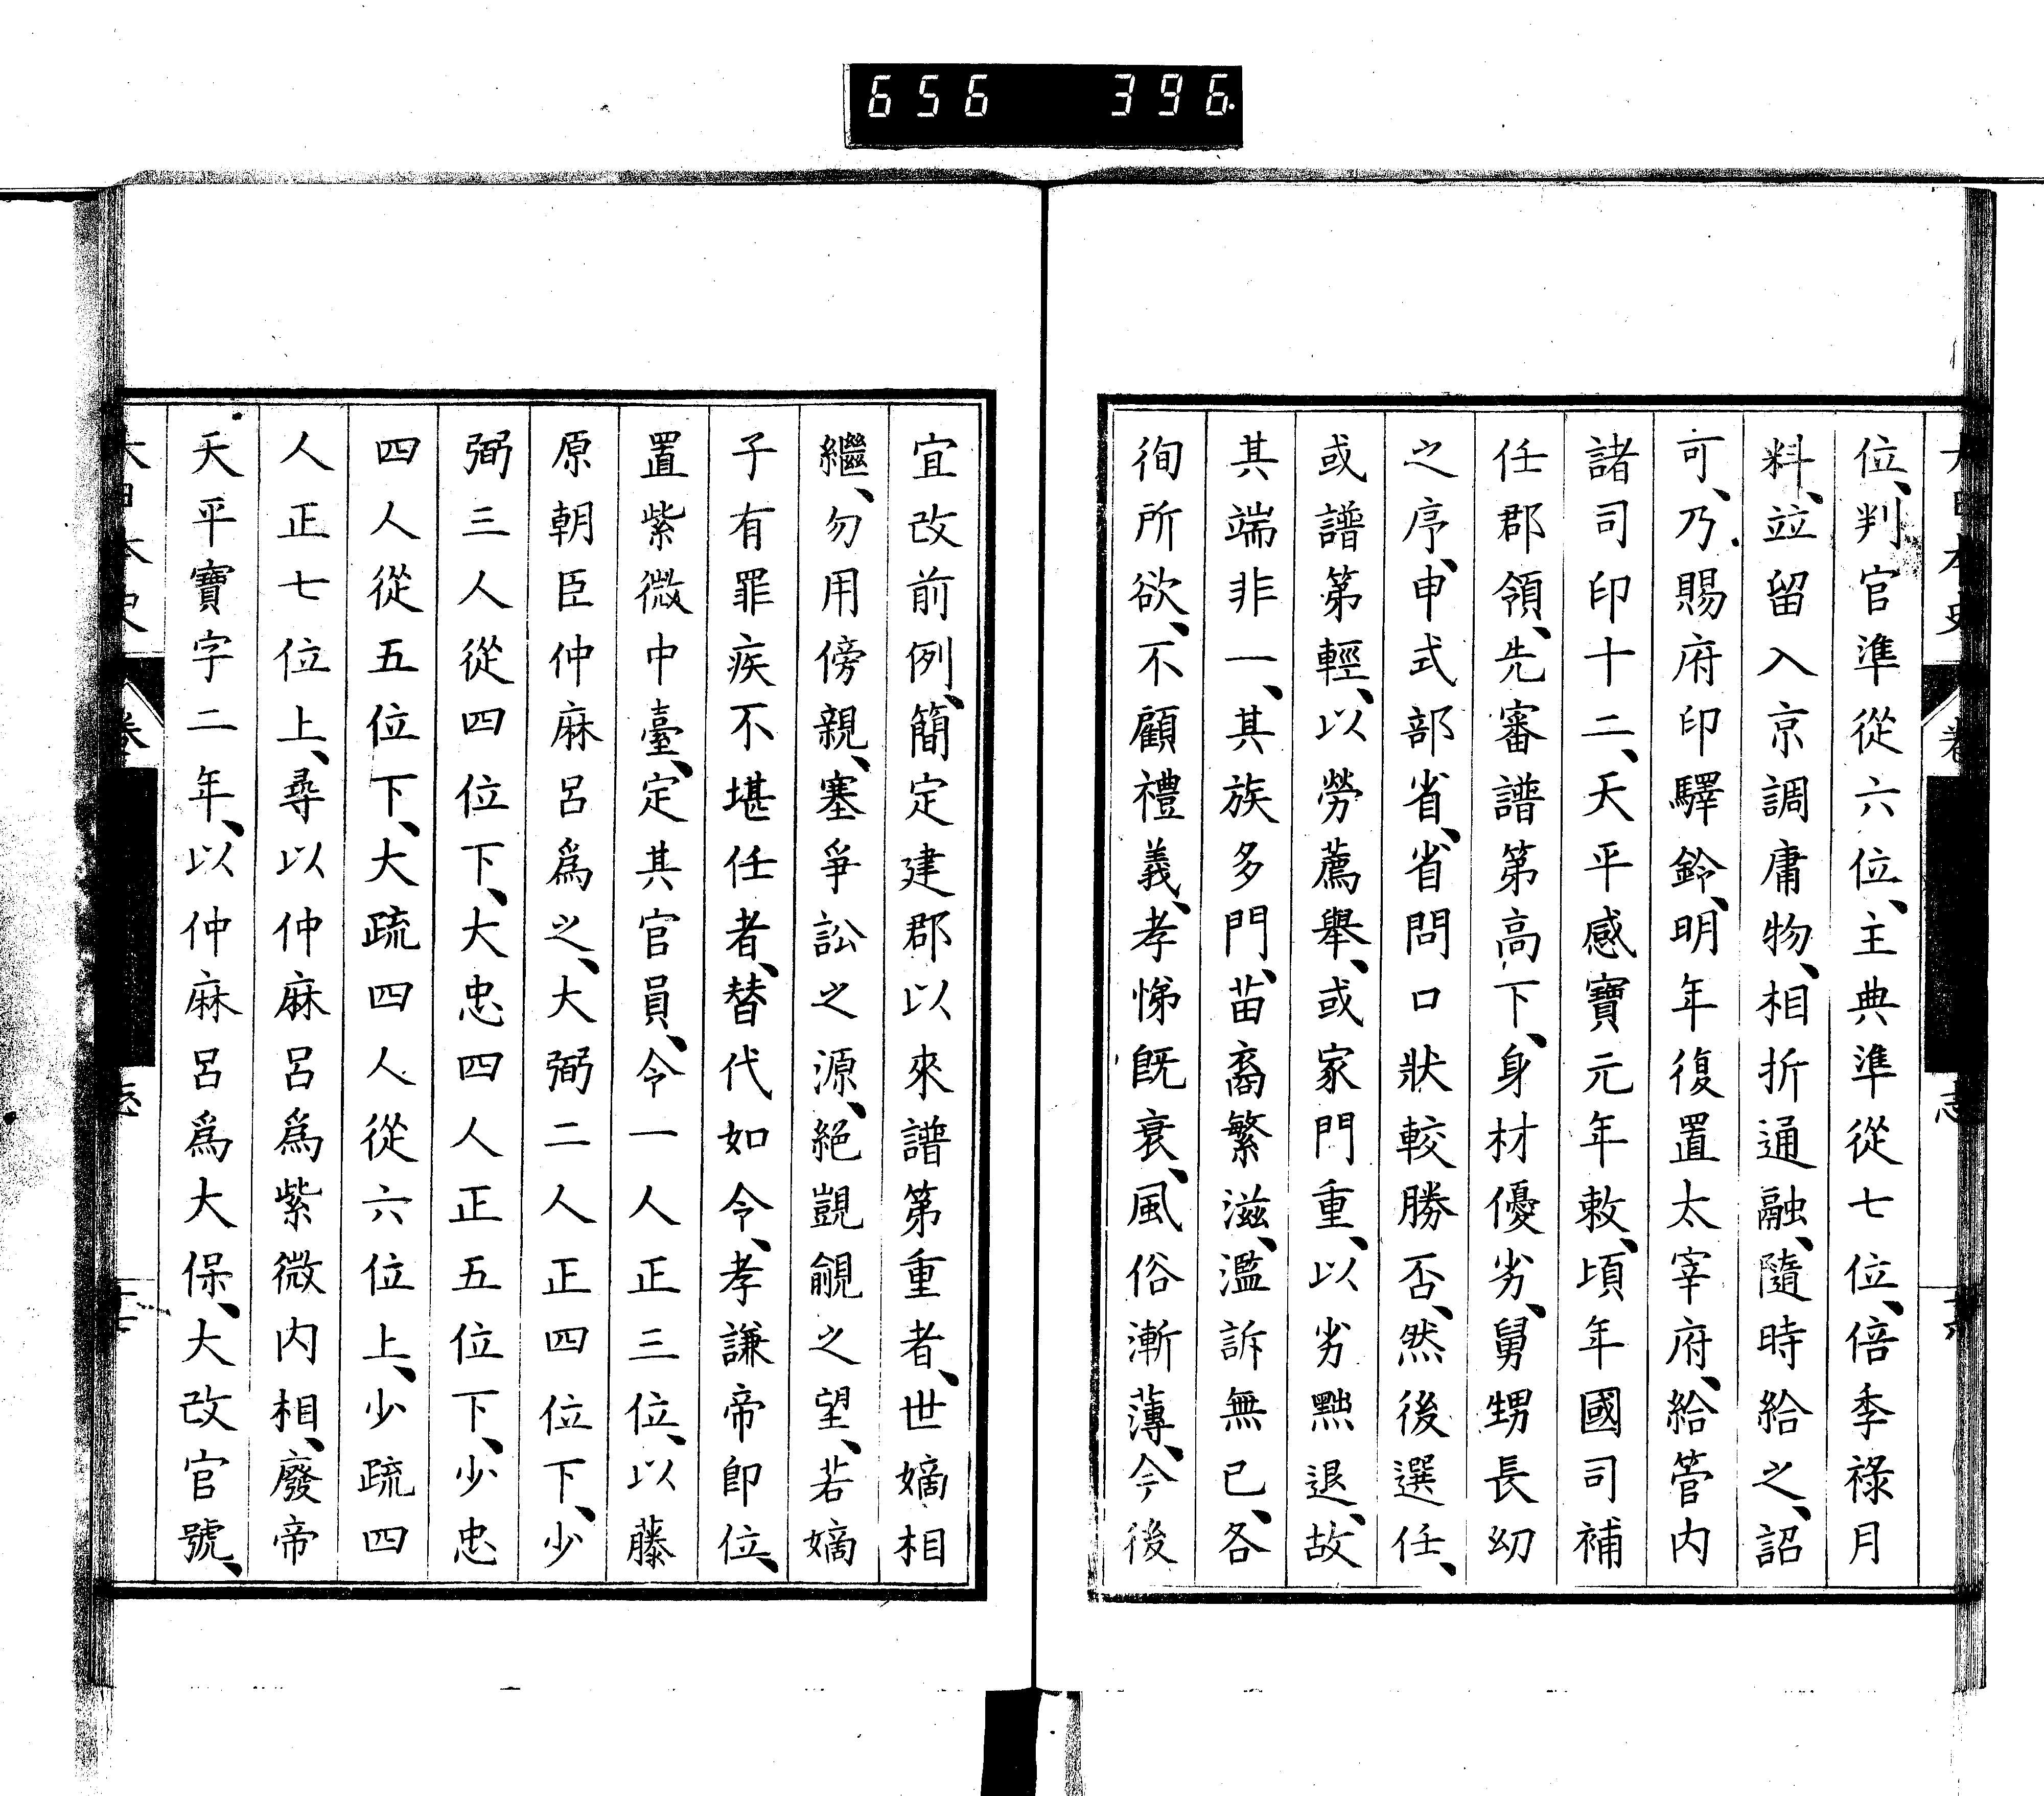 656 396
大日本史 卷 志 十六
位、判官準從六位、主典準從七位、倍季祿月
料、竝留入京調庸物、相折通融、隨時給之、詔
可、乃賜府印驛鈴、明年復置太宰府、給管内
諸司印十二、天平感寶元年敕、頃年國司補
任郡領、先審譜第高下、身材優劣、舅甥長幼
之序、申式部省、省問口狀較勝否、然後選任、
或譜第輕、以勞薦舉、或家門重、以劣黜退、故
其端非一、其族多門、苗裔繁滋、濫訴無已、各
徇所欲、不顧禮義、孝悌既衰、風俗漸薄、今後
宜改前例、簡定建郡以來譜第重者、世嫡相
繼、勿用傍親、塞爭訟之源、絕覬覦之望、若嫡
子有罪疾不堪任者、替代如令、孝謙帝即位、
置紫微中臺、定其官員、令一人正三位、以藤
原朝臣仲麻呂爲之、大弼二人正四位下、少
弼三人從四位下、大忠四人正五位下、少忠
四人從五位下、大疏四人從六位上、少疏四
人正七位上、尋以仲麻呂爲紫微内相、廢帝
天平寶字二年、以仲麻呂爲大保、大改官號、
大日本史 卷 志